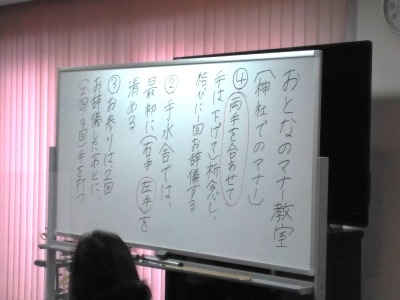 おとなのマナー教室
(神社でのマナー)
④(両手を合わせて
手は下げて)祈念し、
結びに1回お辞儀する
② 手水舎では、
最初に(右手 左手)を
清める
③ お参りは2回
お辞儀したあとに
(2回 3回)手を打つ